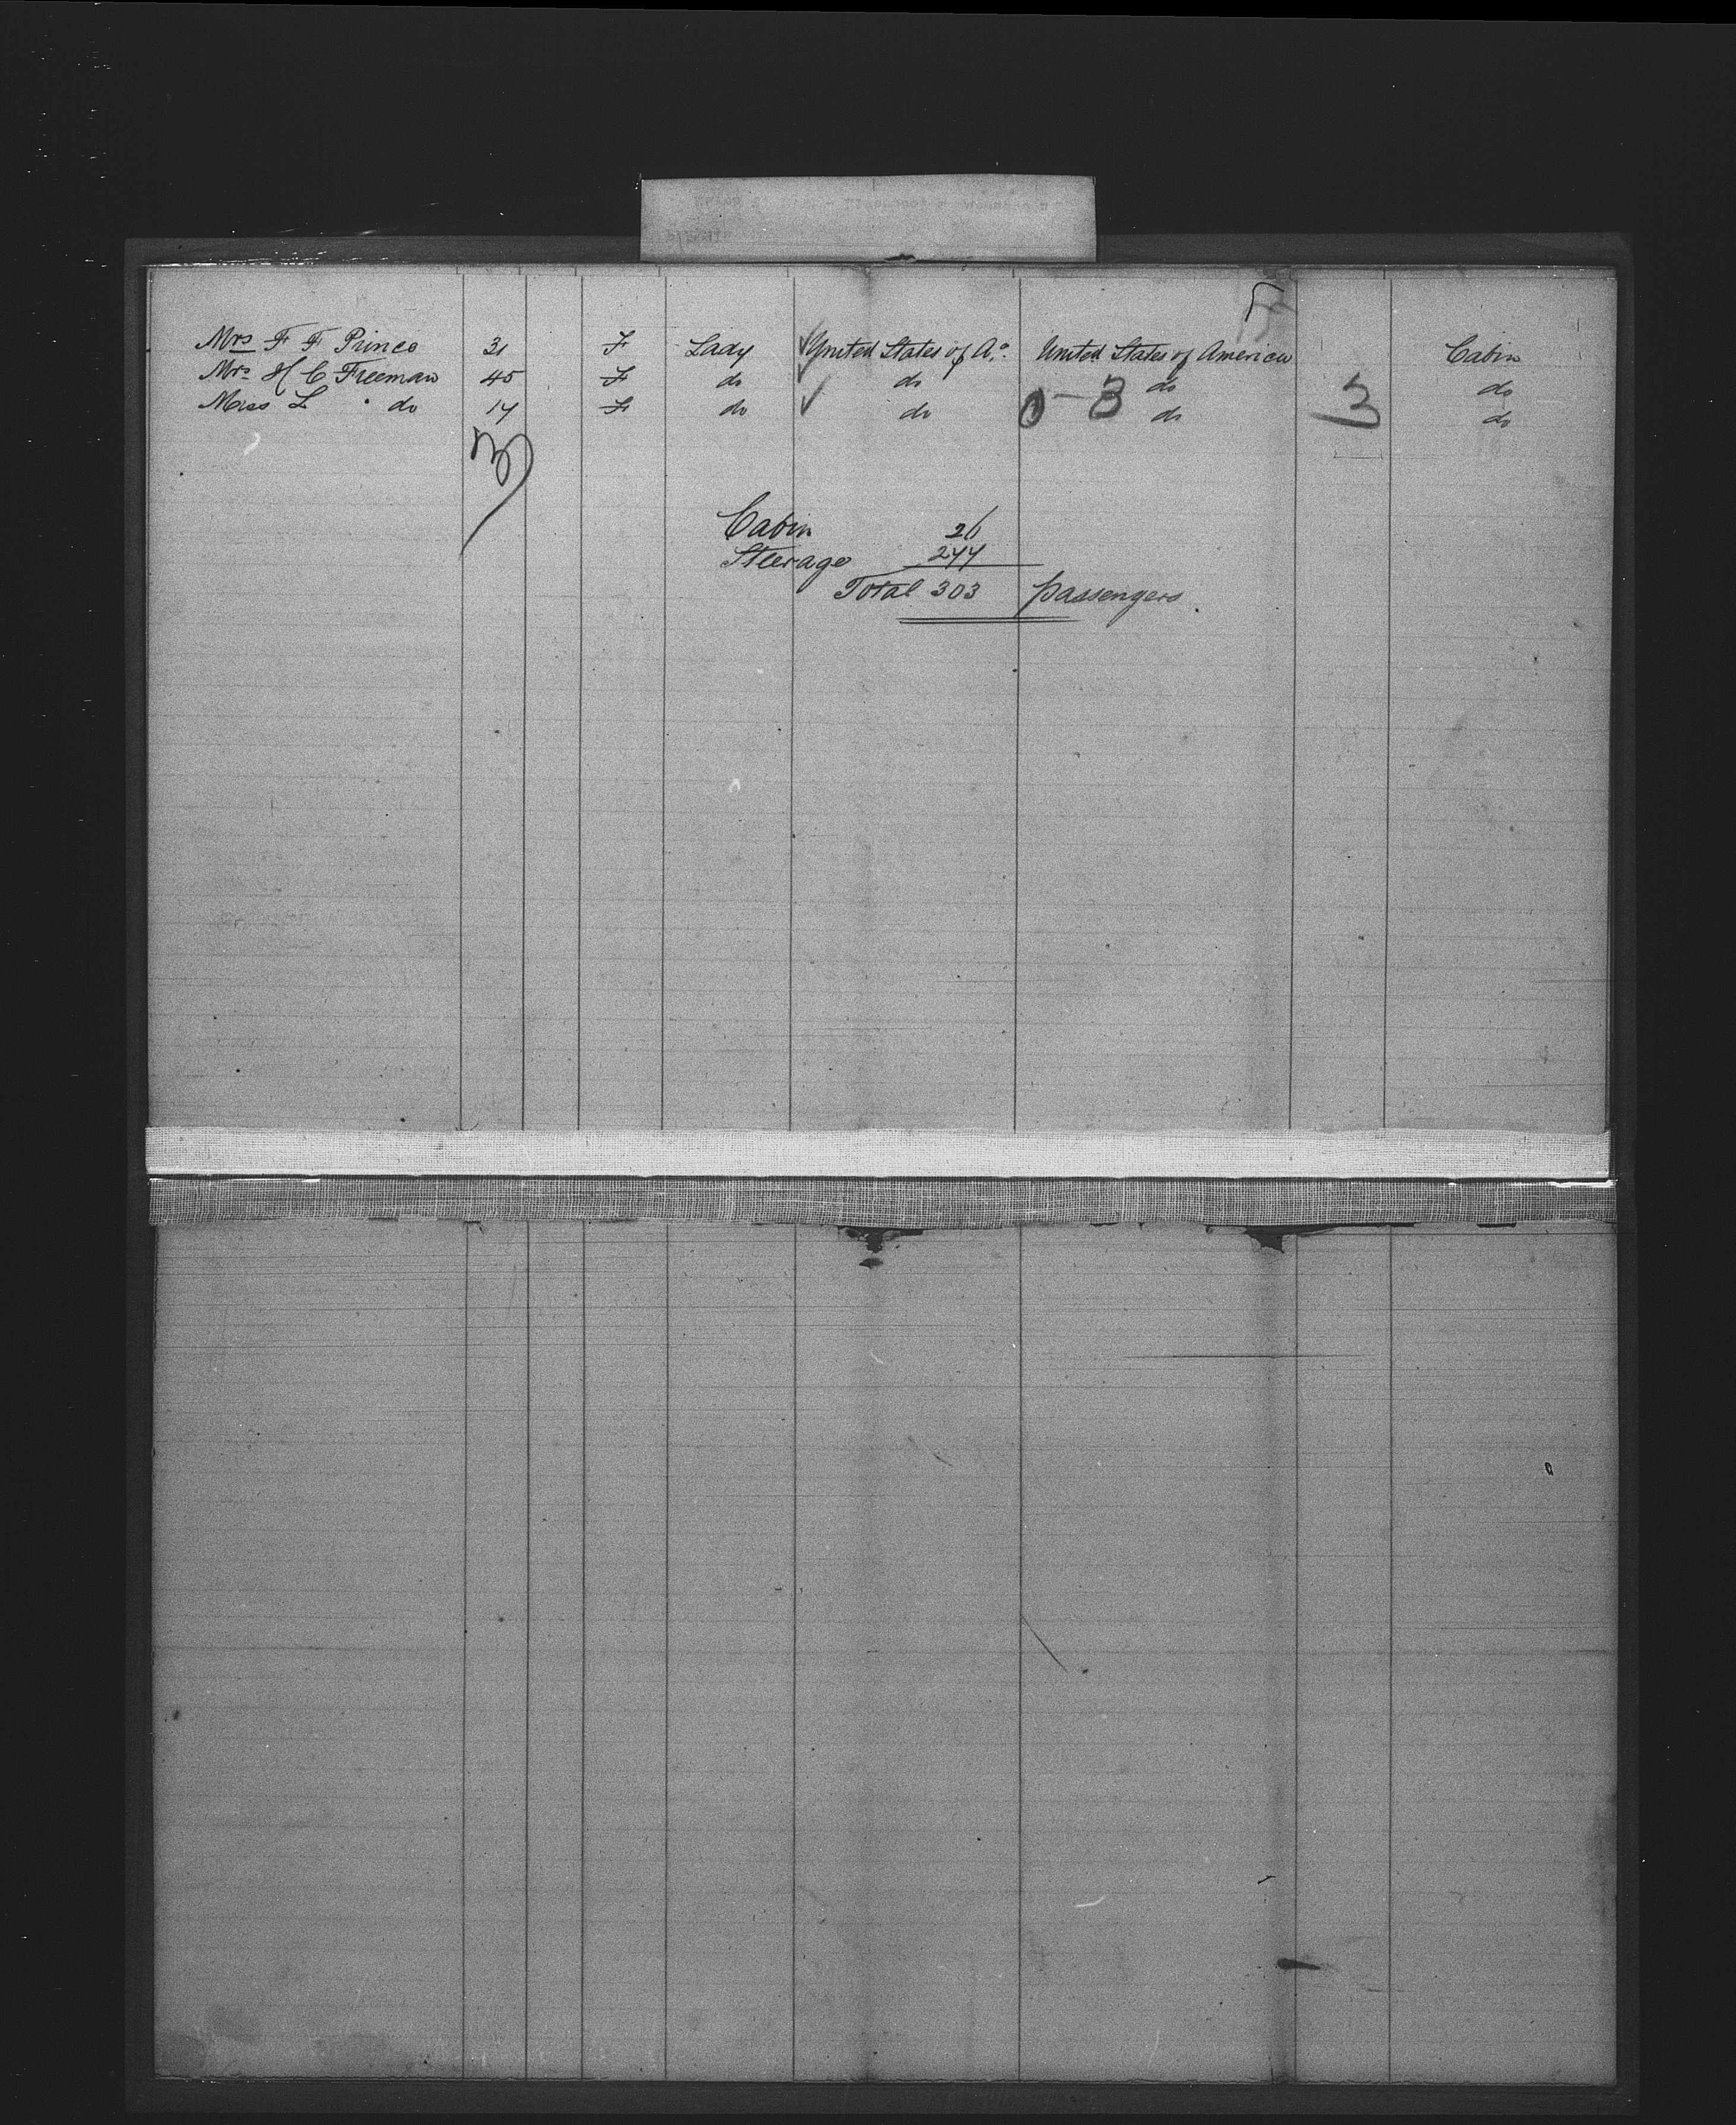 Mrs F F Prince 31 F Lady United States of A.ª United States of America Cabin
Mrs H C Freeman 45 F do do do do
Miss L do 14 F do do 0-3 do 3 do
3
Cabin 26
Steerage 277
Total 303 passengers